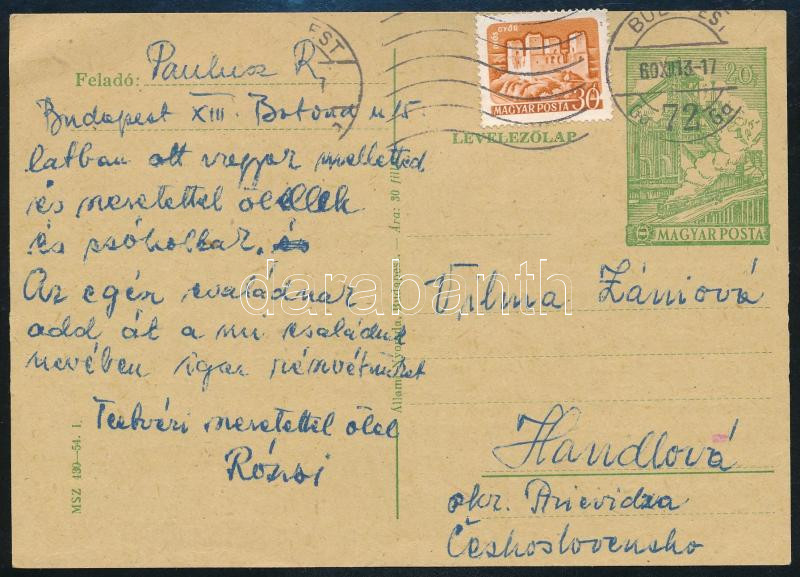 Feladó: Paulusz R.
Budapest XIII. Botond u 15.
latban ott vagyok melletted
és szeretettel ölellek
és csókollak. és
Az egész családnak
add át a mi családunk
nevében igaz részvétünket
Testvéri szeretettel ölel
Rózsi
MSZ 430-54. I.
Ára: 30 fill
BUDAPEST
60 XII 13-17
72
DIÓSGYŐR
MAGYAR POSTA 30
LEVELEZŐLAP
20f
MAGYAR POSTA
Vilma Zániová
Handlová
okr. Prievidza
Československo
darabanth